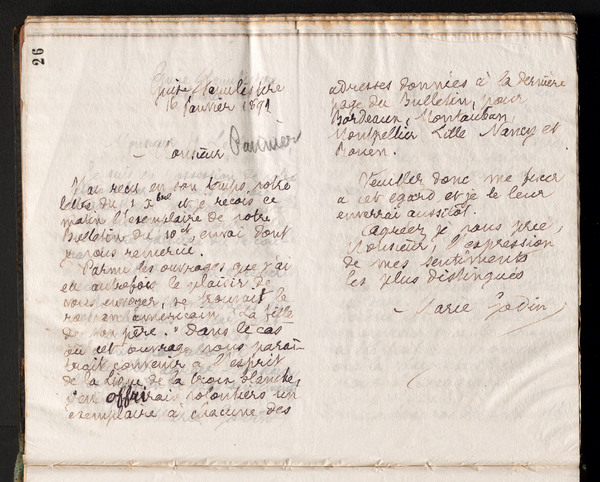 26
Guise Familistère
16 Janvier 1891
Monsieur Pannier
J'ai reçu en son temps votre
lettre du 1 Xbre et je reçois ce
matin l'exemplaire de votre
Bulletin du 10 ct, envoi dont
je vous remercie.
Parmi les ouvrages que j'ai
eu autrefois le plaisir de
vous envoyer, se trouvait le
roman américain "La fille
de son père." Dans le cas
où cet ouvrage vous paraî-
trait convenir à l'esprit
de la Ligue de la croix blanche,
j'en offrirais volontiers un
exemplaire à chacune des
adresses données à la dernière
page du Bulletin, pour
Bordeaux, Montauban,
Montpellier Lille Nancy et
Rouen.
Veuillez donc me fixer
à cet égard et je le leur
enverrai aussitôt.
Agréez je vous prie,
Monsieur, l'expression
de mes sentiments
les plus distingués
Marie Godin